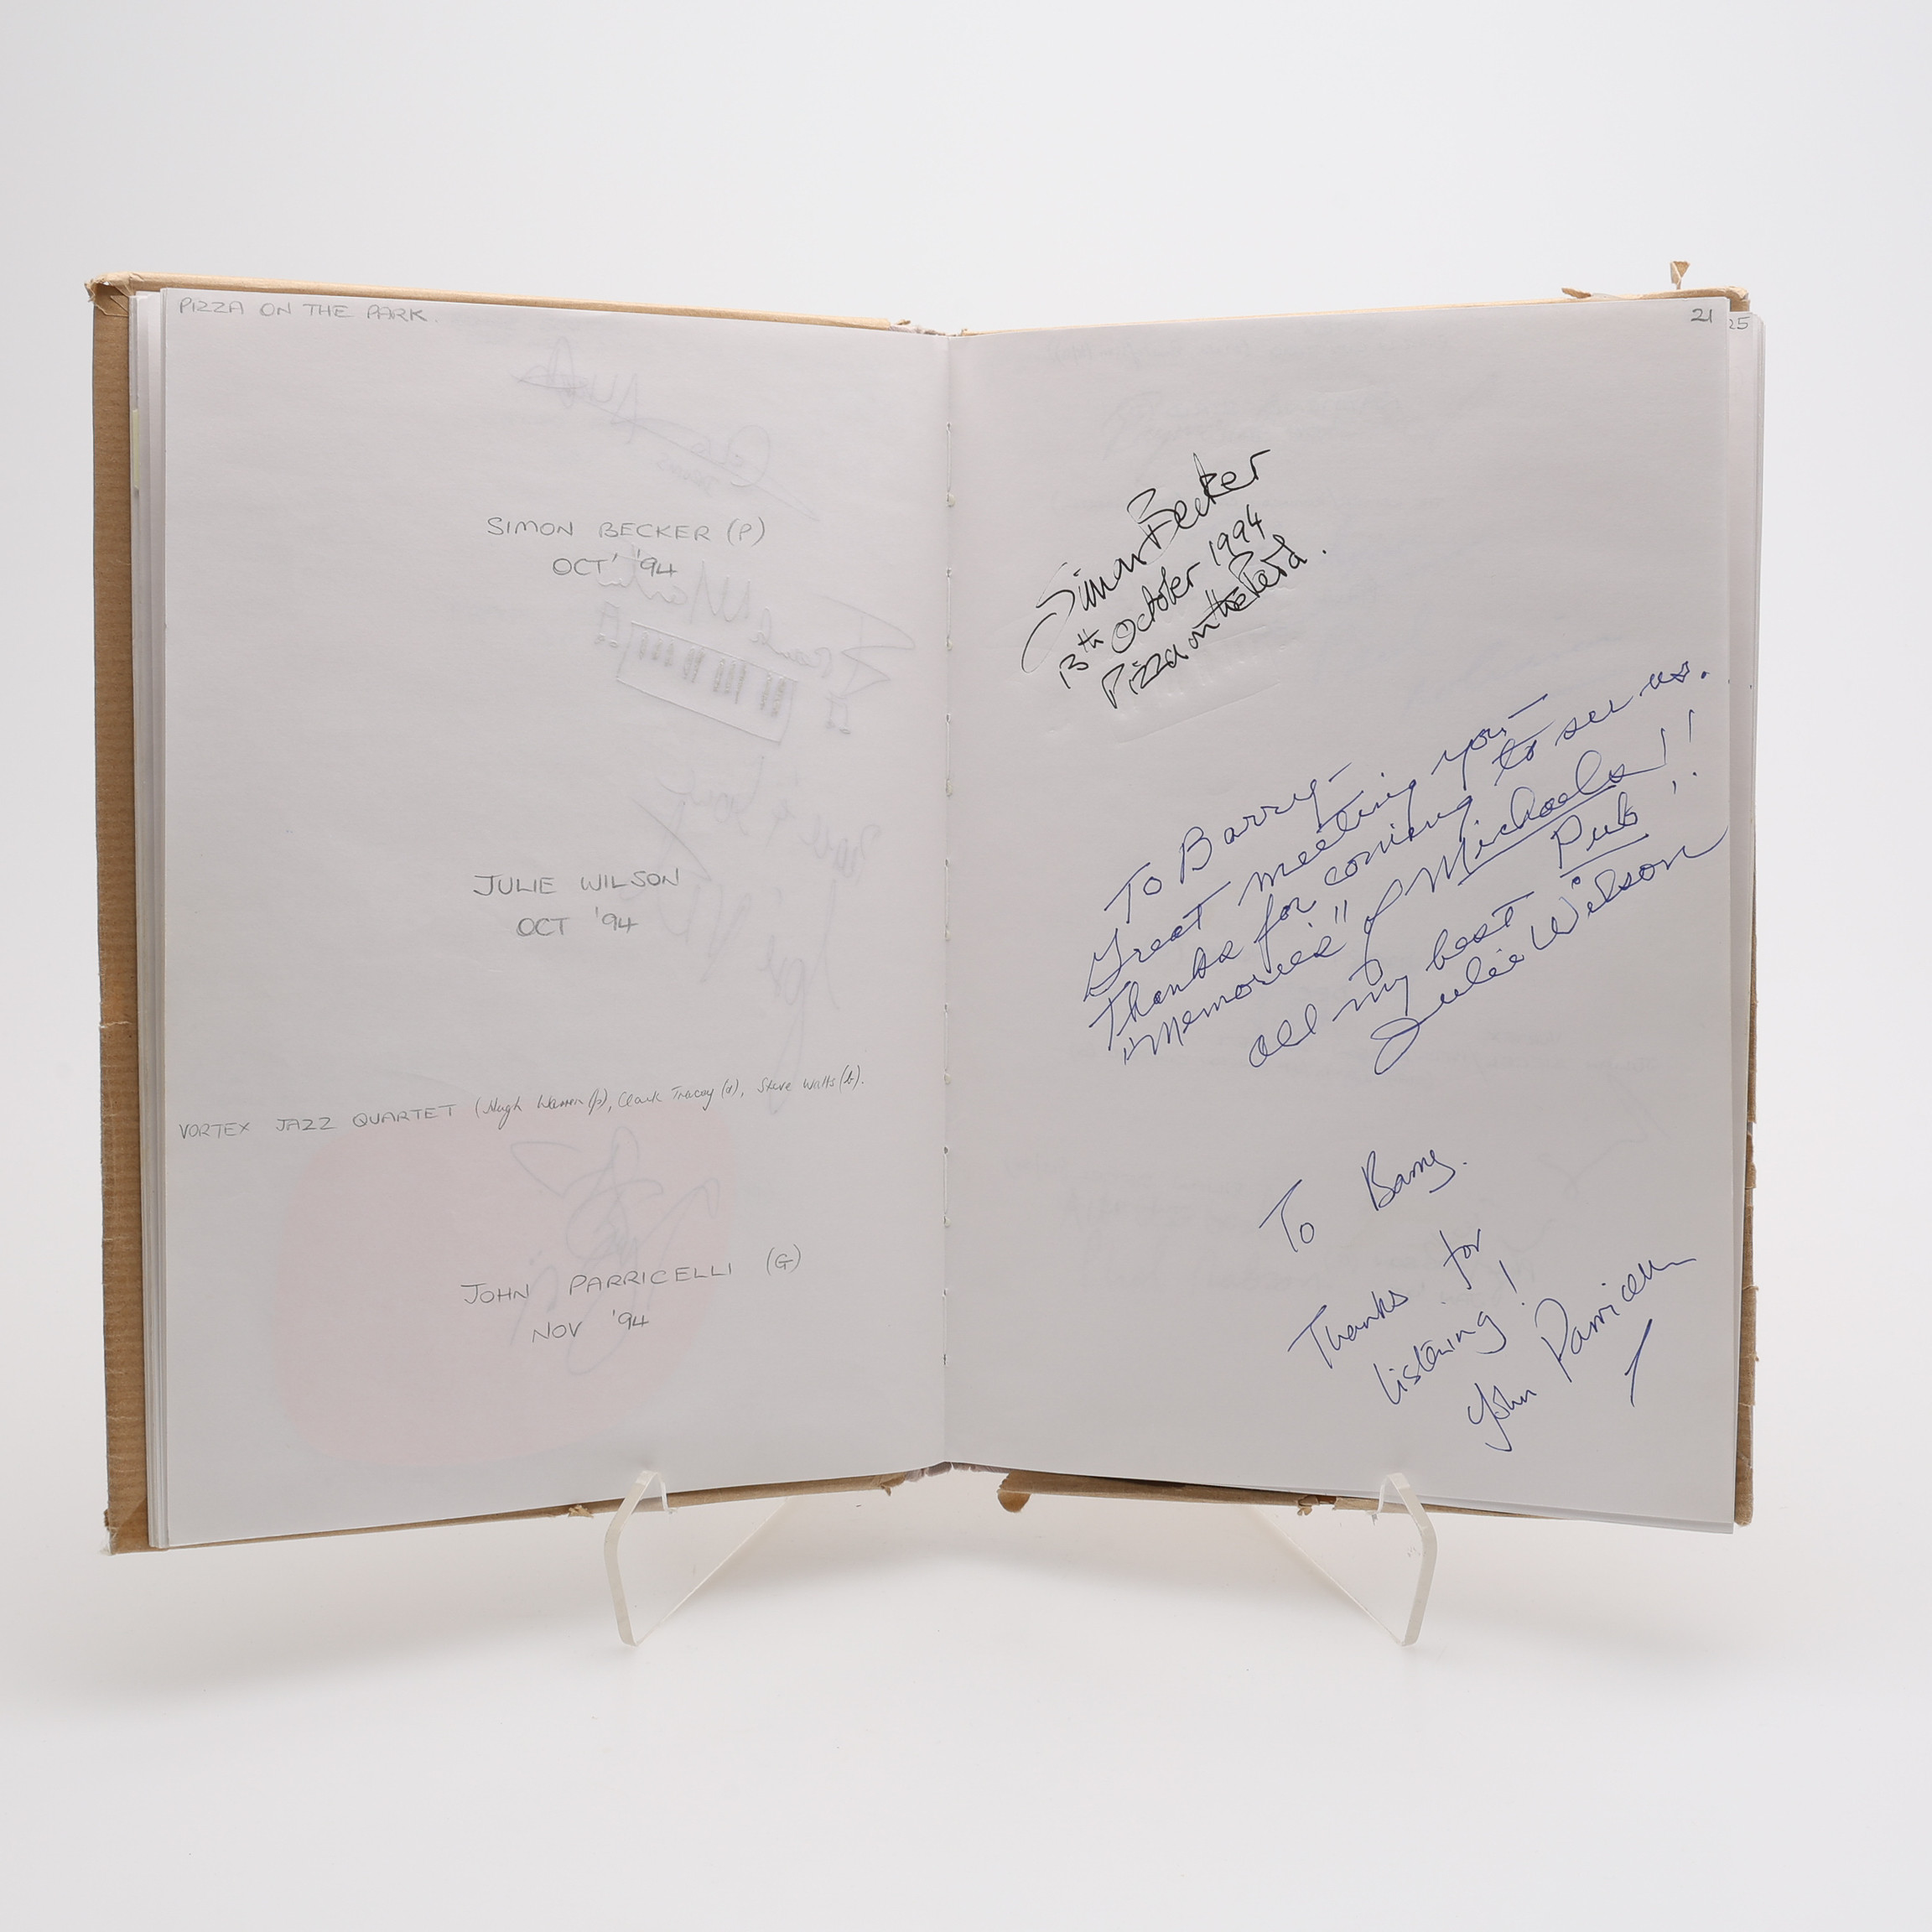 PIZZA ON THE PARK.
SIMON BECKER (P)
OCT' '94
JULIE WILSON
OCT '94
VORTEX JAZZ QUARTET (Hugh Warren (p), Clark Tracey (d), Steve Watts (b).
JOHN PARRICELLI (G)
NOV '94
21
25
Simon Becker
13th October 1994
Pizza on the Park.
To Barry-
Great meeting you-
Thanks for coming to see us.
"Memories" of Michaels!!
Pub!
all my best
Julie Wilson
To Barry.
Thanks for
listening!
John Parricelli